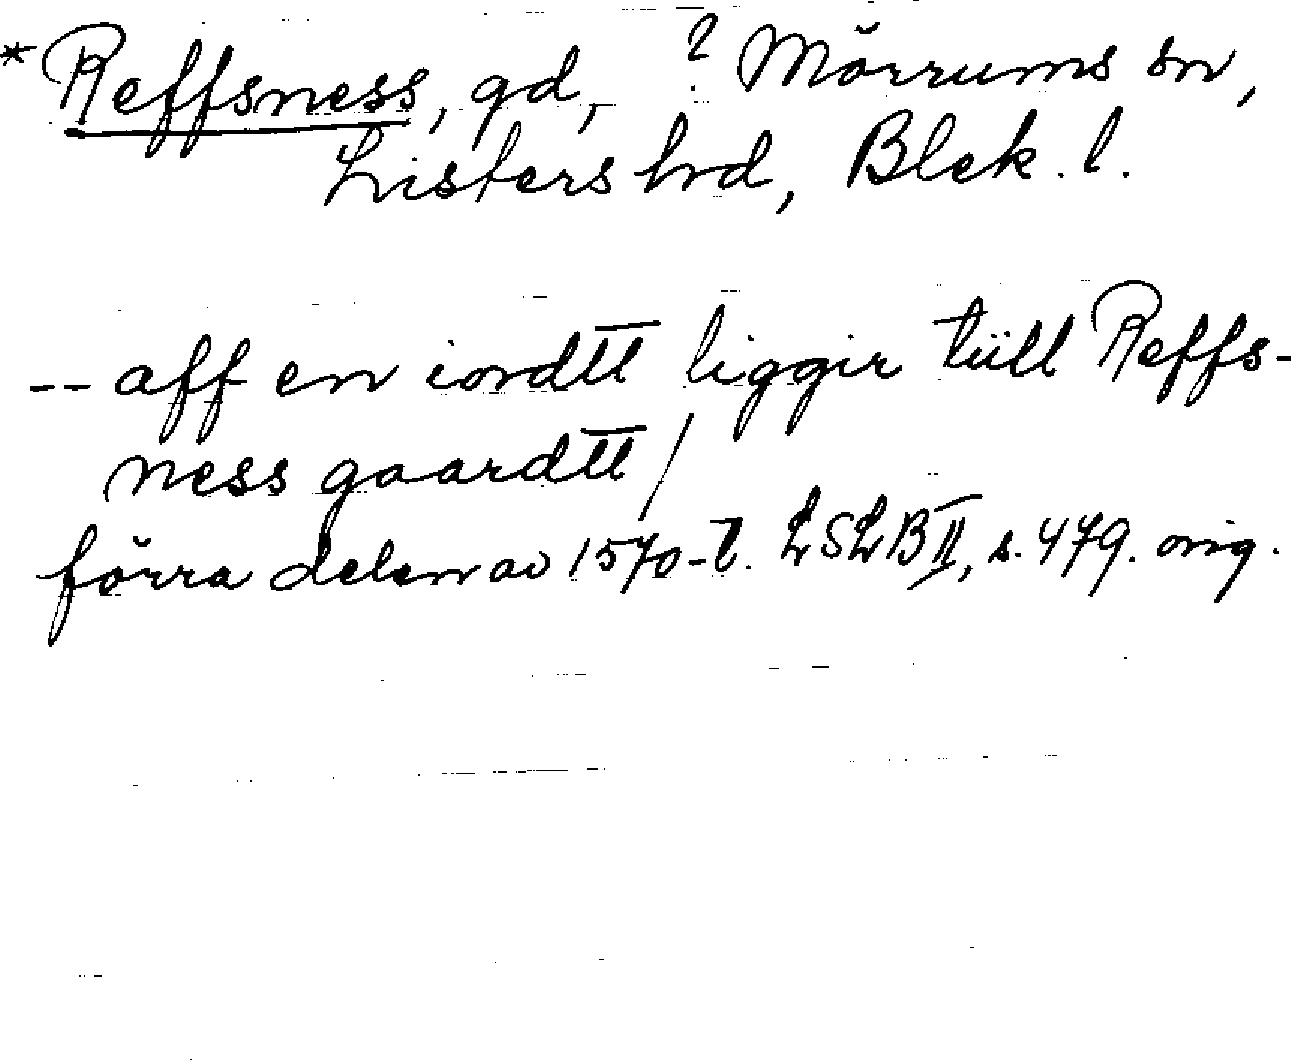 *Reffsness, gd, ? Mörrums sn,
Listers hd, Blek. l.
-- aff en iordtt liggir tüll Reffs-
ness gaardtt /
förra delen av 1570-t. LSLB II, s. 479. orig.